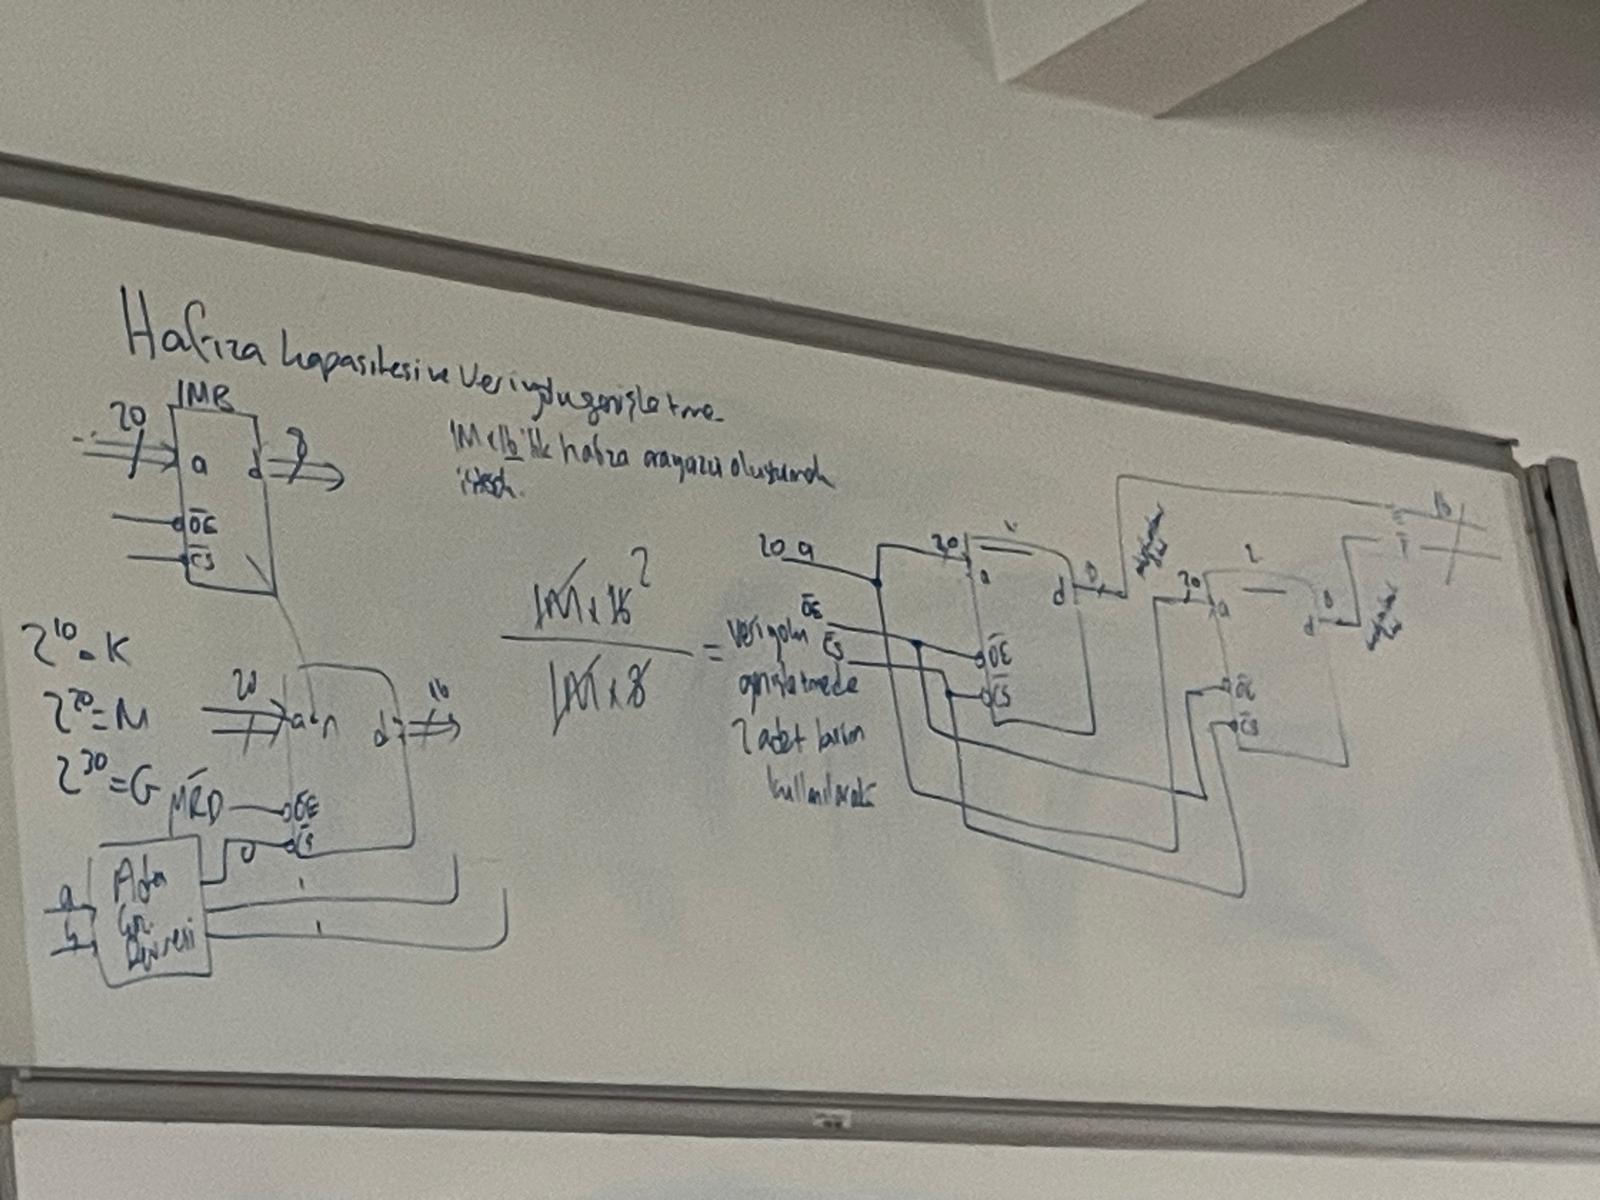 Hafıza kapasitesi ve veriyolu genişletme
1MB
20
a
d
8
OE
CS
1M x 16'lık hafıza arayüzü oluşturmak
2^10 = K
2^20 = M
2^30 = G
20
d
16
MRD
OE
CS
0
1
1
Adr
Devresi
1M x 16 2
1M x 8
=
veriyolu
genişletmede
2 adet
kullanılarak
20 a
OE
CS
20
a
d
8
OE
CS
2
20
a
d
8
OE
CS
16